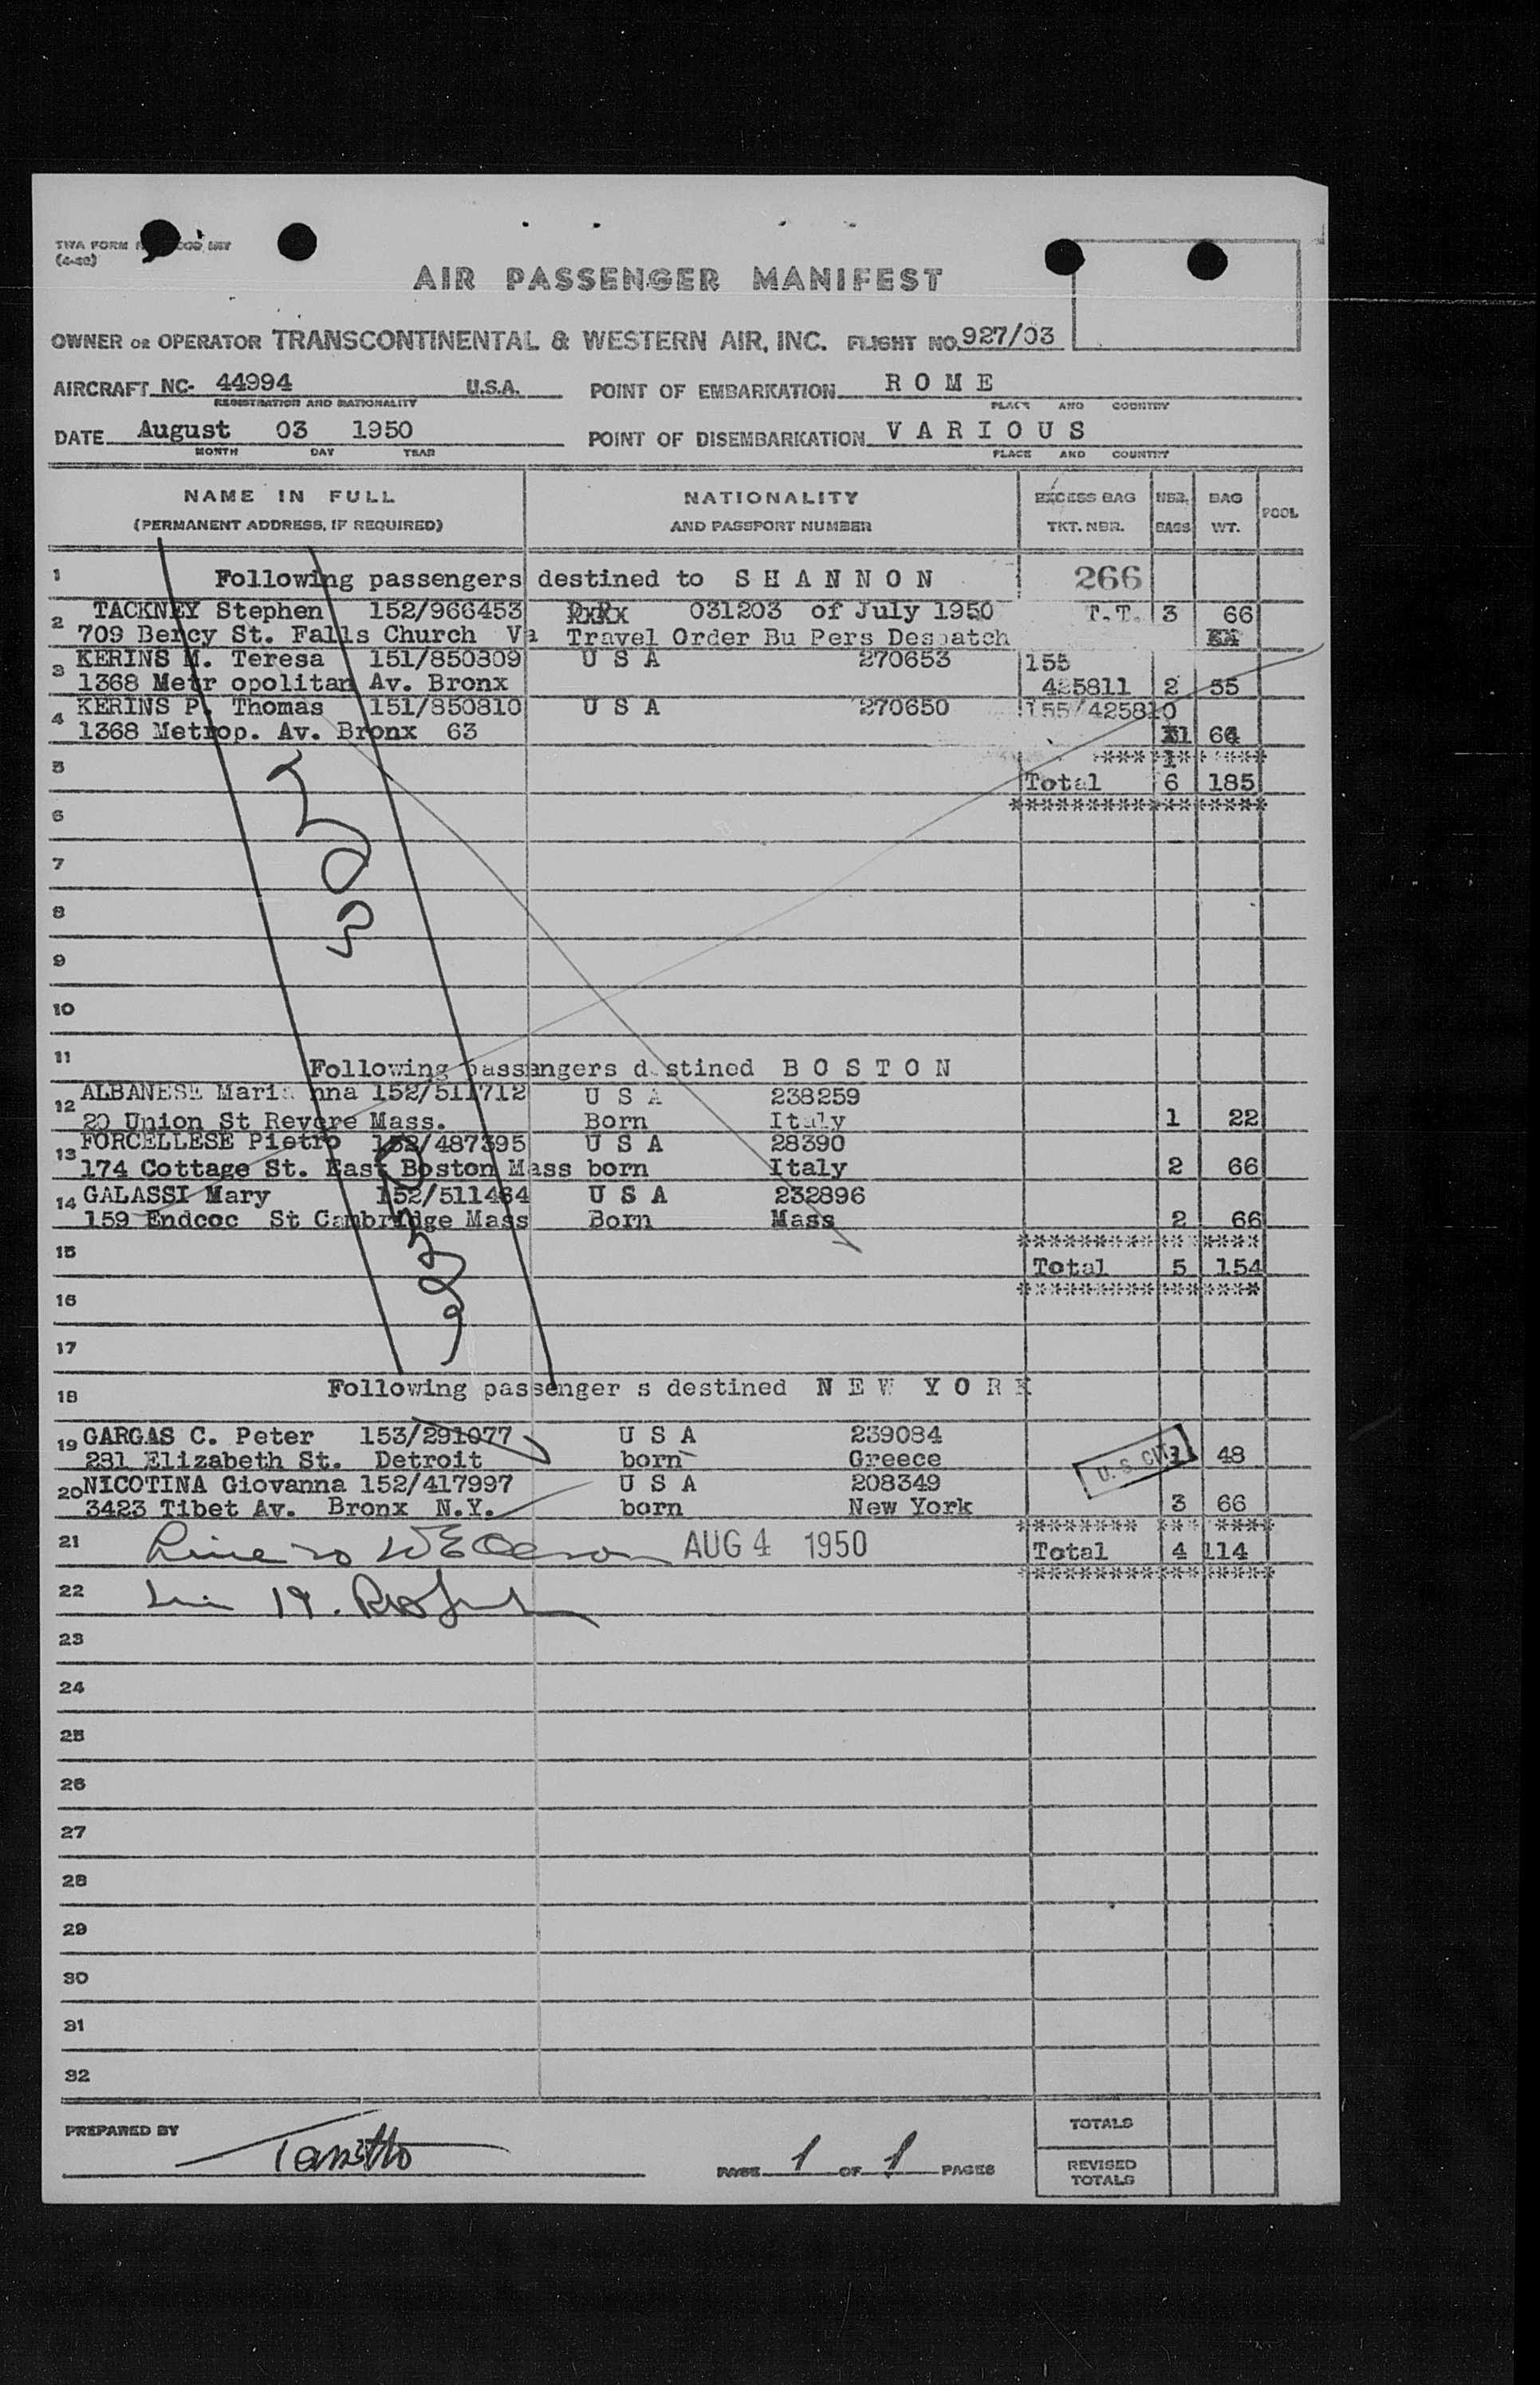 TWA FORM
(4-48)
AIR PASSENGER MANIFEST
OWNER OR OPERATOR TRANSCONTINENTAL & WESTERN AIR, INC. FLIGHT NO. 927/03
AIRCRAFT NC- 44994 U.S.A. POINT OF EMBARKATION R O M E
REGISTRATION AND NATIONALITY PLACE AND COUNTRY
DATE August 03 1950 POINT OF DISEMBARKATION V A R I O U S
MONTH DAY YEAR PLACE AND COUNTRY
NAME IN FULL NATIONALITY EXCESS BAG NBR. BAG POOL
(PERMANENT ADDRESS, IF REQUIRED) AND PASSPORT NUMBER TKT. NBR. BAGS WT.
1 Following passengers destined to S H A N N O N 266
2 TACKNEY Stephen 152/966453 031203 of July 1950 T.T. 3 66
709 Bercy St. Falls Church Va Travel Order Bu Pers Despatch
3 KERINS M. Teresa 151/850809 U S A 270653 155
1368 Metr opolitan Av. Bronx 425811 2 55
4 KERINS P. Thomas 151/850810 U S A 270650 155/425810
1368 Metrop. Av. Bronx 63 1 64
5 ****** ****
1
Total 6 185
6 ****************
7
8
9
10
11 Following passengers d stined B O S T O N
12 ALBANESE Maria nna 152/511712 U S A 238259
20 Union St Revere Mass. Born Italy 1 22
13 FORCELLESE Pietro 152/487395 U S A 28390
174 Cottage St. East Boston Mass born Italy 2 66
14 GALASSI Mary 152/511484 U S A 232896
159 Endcoc St Cambridge Mass Born Mass 2 66
15 ****************
Total 5 154
16 ****************
17
18 Following passenger s destined N E W Y O R K
19 GARGAS C. Peter 153/291077 U S A 239084
281 Elizabeth St. Detroit born Greece U. S. CIT. 1 48
20 NICOTINA Giovanna 152/417997 U S A 208349
3423 Tibet Av. Bronx N.Y. born New York 3 66
******** *** ****
21 Line 20 AUG 4 1950 Total 4 114
****************
22 19.
23
24
25
26
27
28
29
30
31
32
PREPARED BY TOTALS
PAGE 1 OF 1 PAGES REVISED
TOTALS